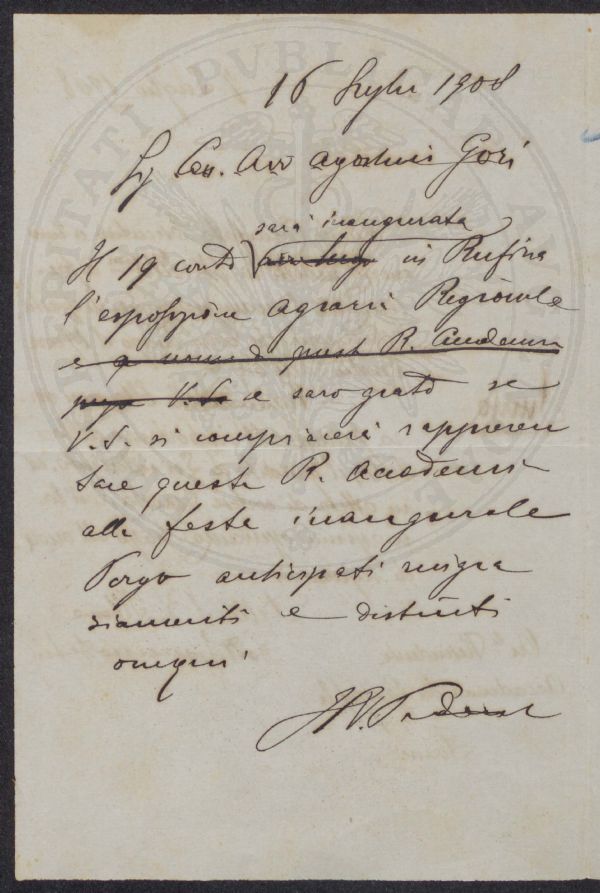 16 Luglio 1908
Sig Cav. Avv Agostino Gori
sarà inaugurata
Il 19 corrte avrà luogo in Rufina
l'esposizione Agraria Regionale
e a nome di questa R. Accademia
prego V.S. e sarò grato se
V.S. si compiacerà rappresen
tare questa R. Accademia
alla festa inaugurale
Porgo anticipati ringra
ziamenti e distinti
ossequi
Il V. Presidente